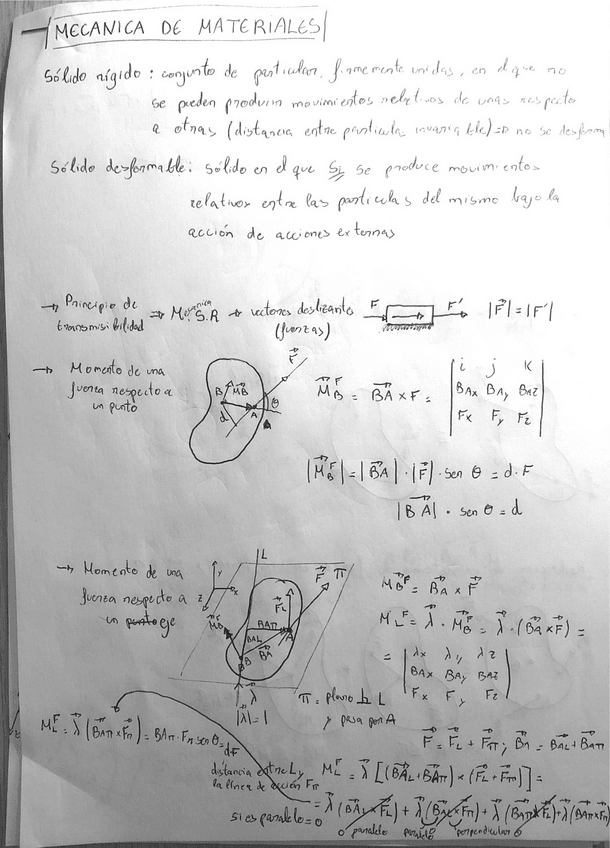 MECANICA DE MATERIALES
Sólido rígido : conjunto de particular. firmemente unidas, en el que no
se pueden producir movimientos relativos de unas respecto
a otras (distancia entre particulas invariable) => no se desforma
Sólido desformable: sólido en el que Si se produce movimientos
relativos entre las particulas del mismo bajo la
acción de acciones externas
→ Principio de transmisibilidad ⇒ Mecanica S.R → vectores deslizantes (fuerzas) F F' |F| = |F'|
→ Momento de una
fuerza respecto a
un punto
F
B M_B A θ d
M_B^F = BA × F =
i j k
BAx BAy BAz
Fx Fy Fz
|M_B^F| = |BA| · |F| · sen θ = d · F
|BA| · sen θ = d
→ Momento de una
fuerza respecto a
un eje
L F π
y x z
F_L BAπ BAL BA B A M_B
λ
|λ| = 1
M_B^F = BA × F
M_L^F = λ · M_B^F = λ · (BA × F) =
=
λx λy λz
BAx BAy BAz
Fx Fy Fz
π = plano ⊥ L
y pasa por A
M_L^F = λ (BAπ × Fπ) = BAπ · Fπ sen θ = dF
F = F_L + Fπ ; BA = BAL + BAπ
distancia entre L y
la línea de acción Fπ
M_L^F = λ [(BAL + BAπ) × (F_L + Fπ)] =
= λ (BAL × F_L) + λ (BAL × Fπ) + λ (BAπ × F_L) + λ (BAπ × Fπ)
si es paralelo = 0
0 paralelo perpendicular 0